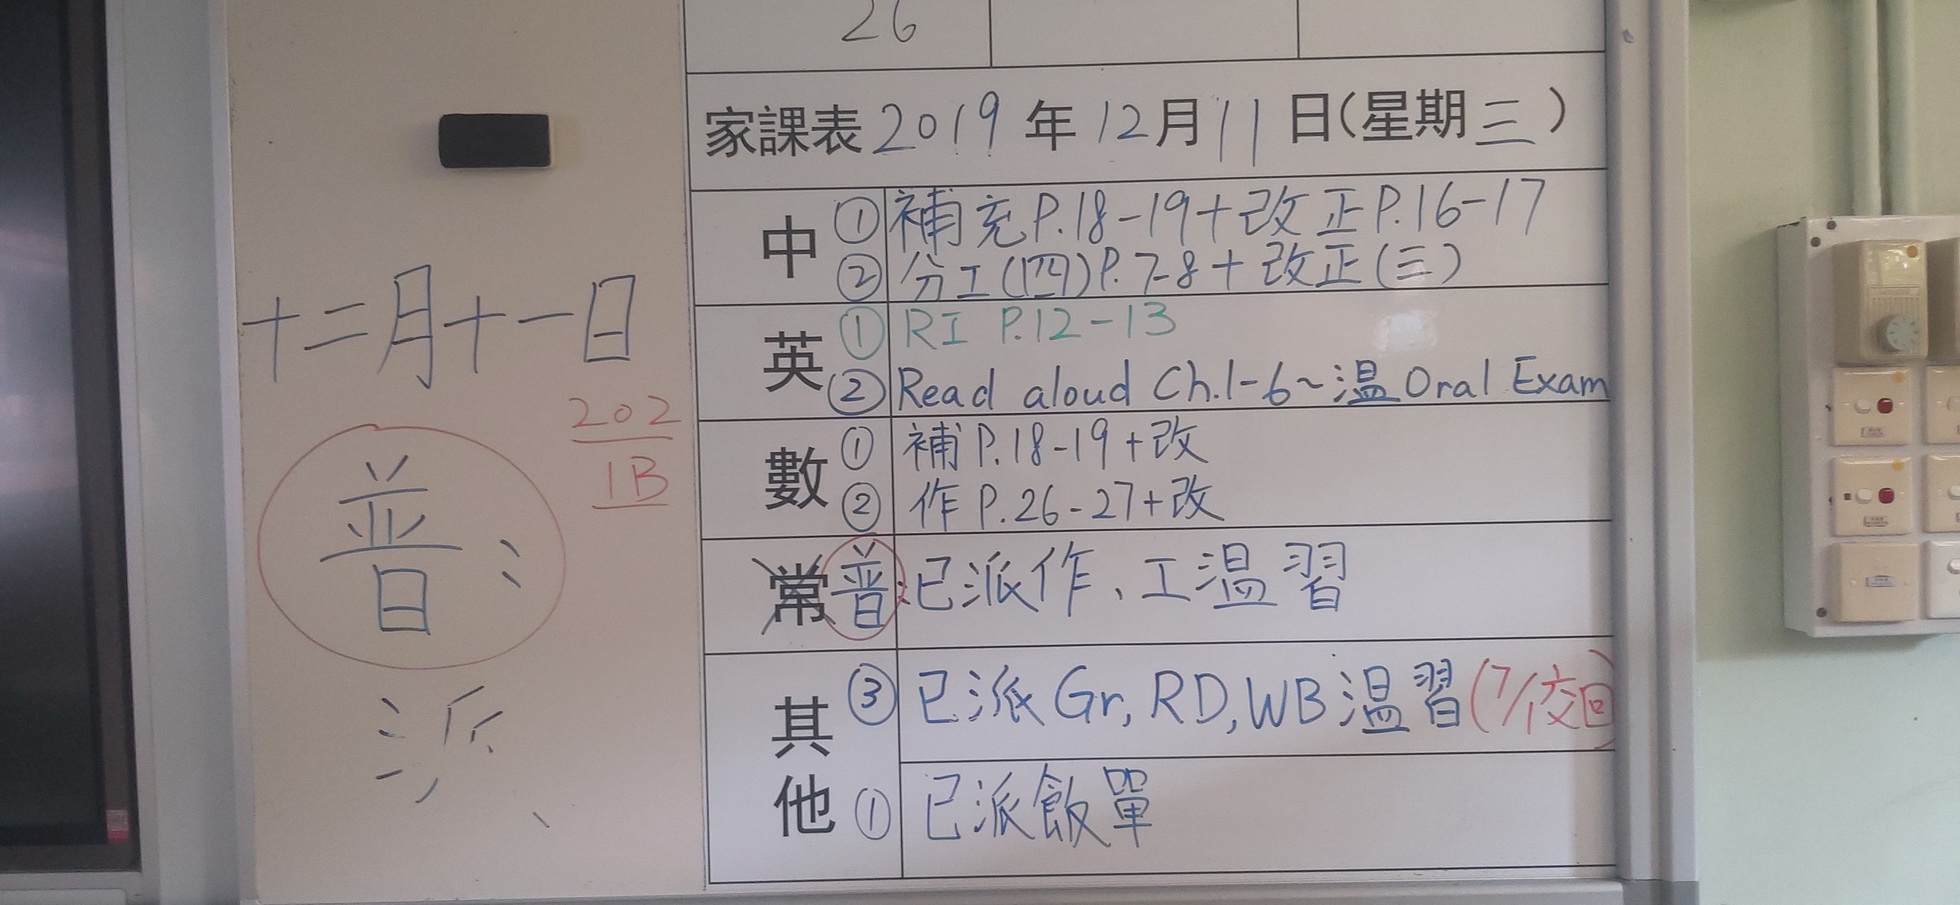 26
十二月十一日
202
1B
普：
派
家課表2019年12月11日(星期三)
中 ① 補充P.18-19+改正P.16-17
② 分工(四)P.7-8+改正(三)
英 ① RI P.12-13
② Read aloud Ch.1-6~溫Oral Exam
數 ① 補P.18-19+改
② 作P.26-27+改
常 普：已派作、工溫習
其他 ③ 已派Gr, RD, WB溫習(7/校回)
① 已派飯單